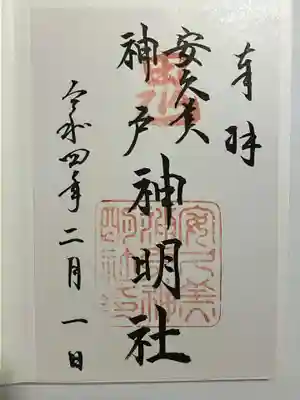 奉拝
安久美
神戸神明社
令和四年二月一日